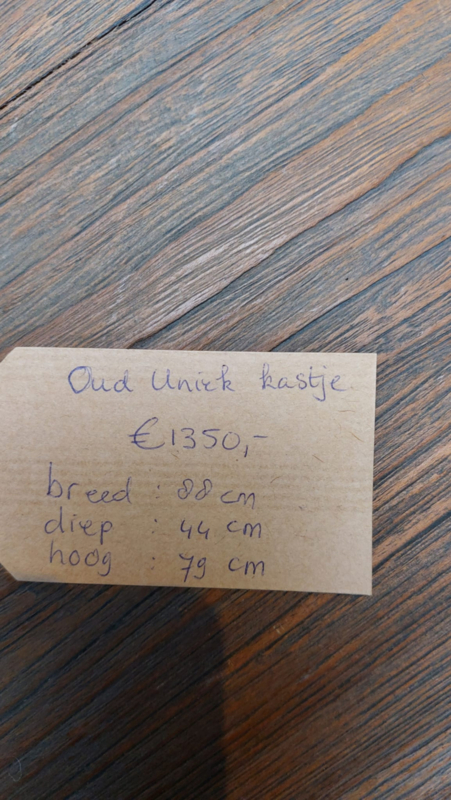 Oud Uniek kastje
€1350,-
breed : 88 cm
diep : 44 cm
hoog : 79 cm